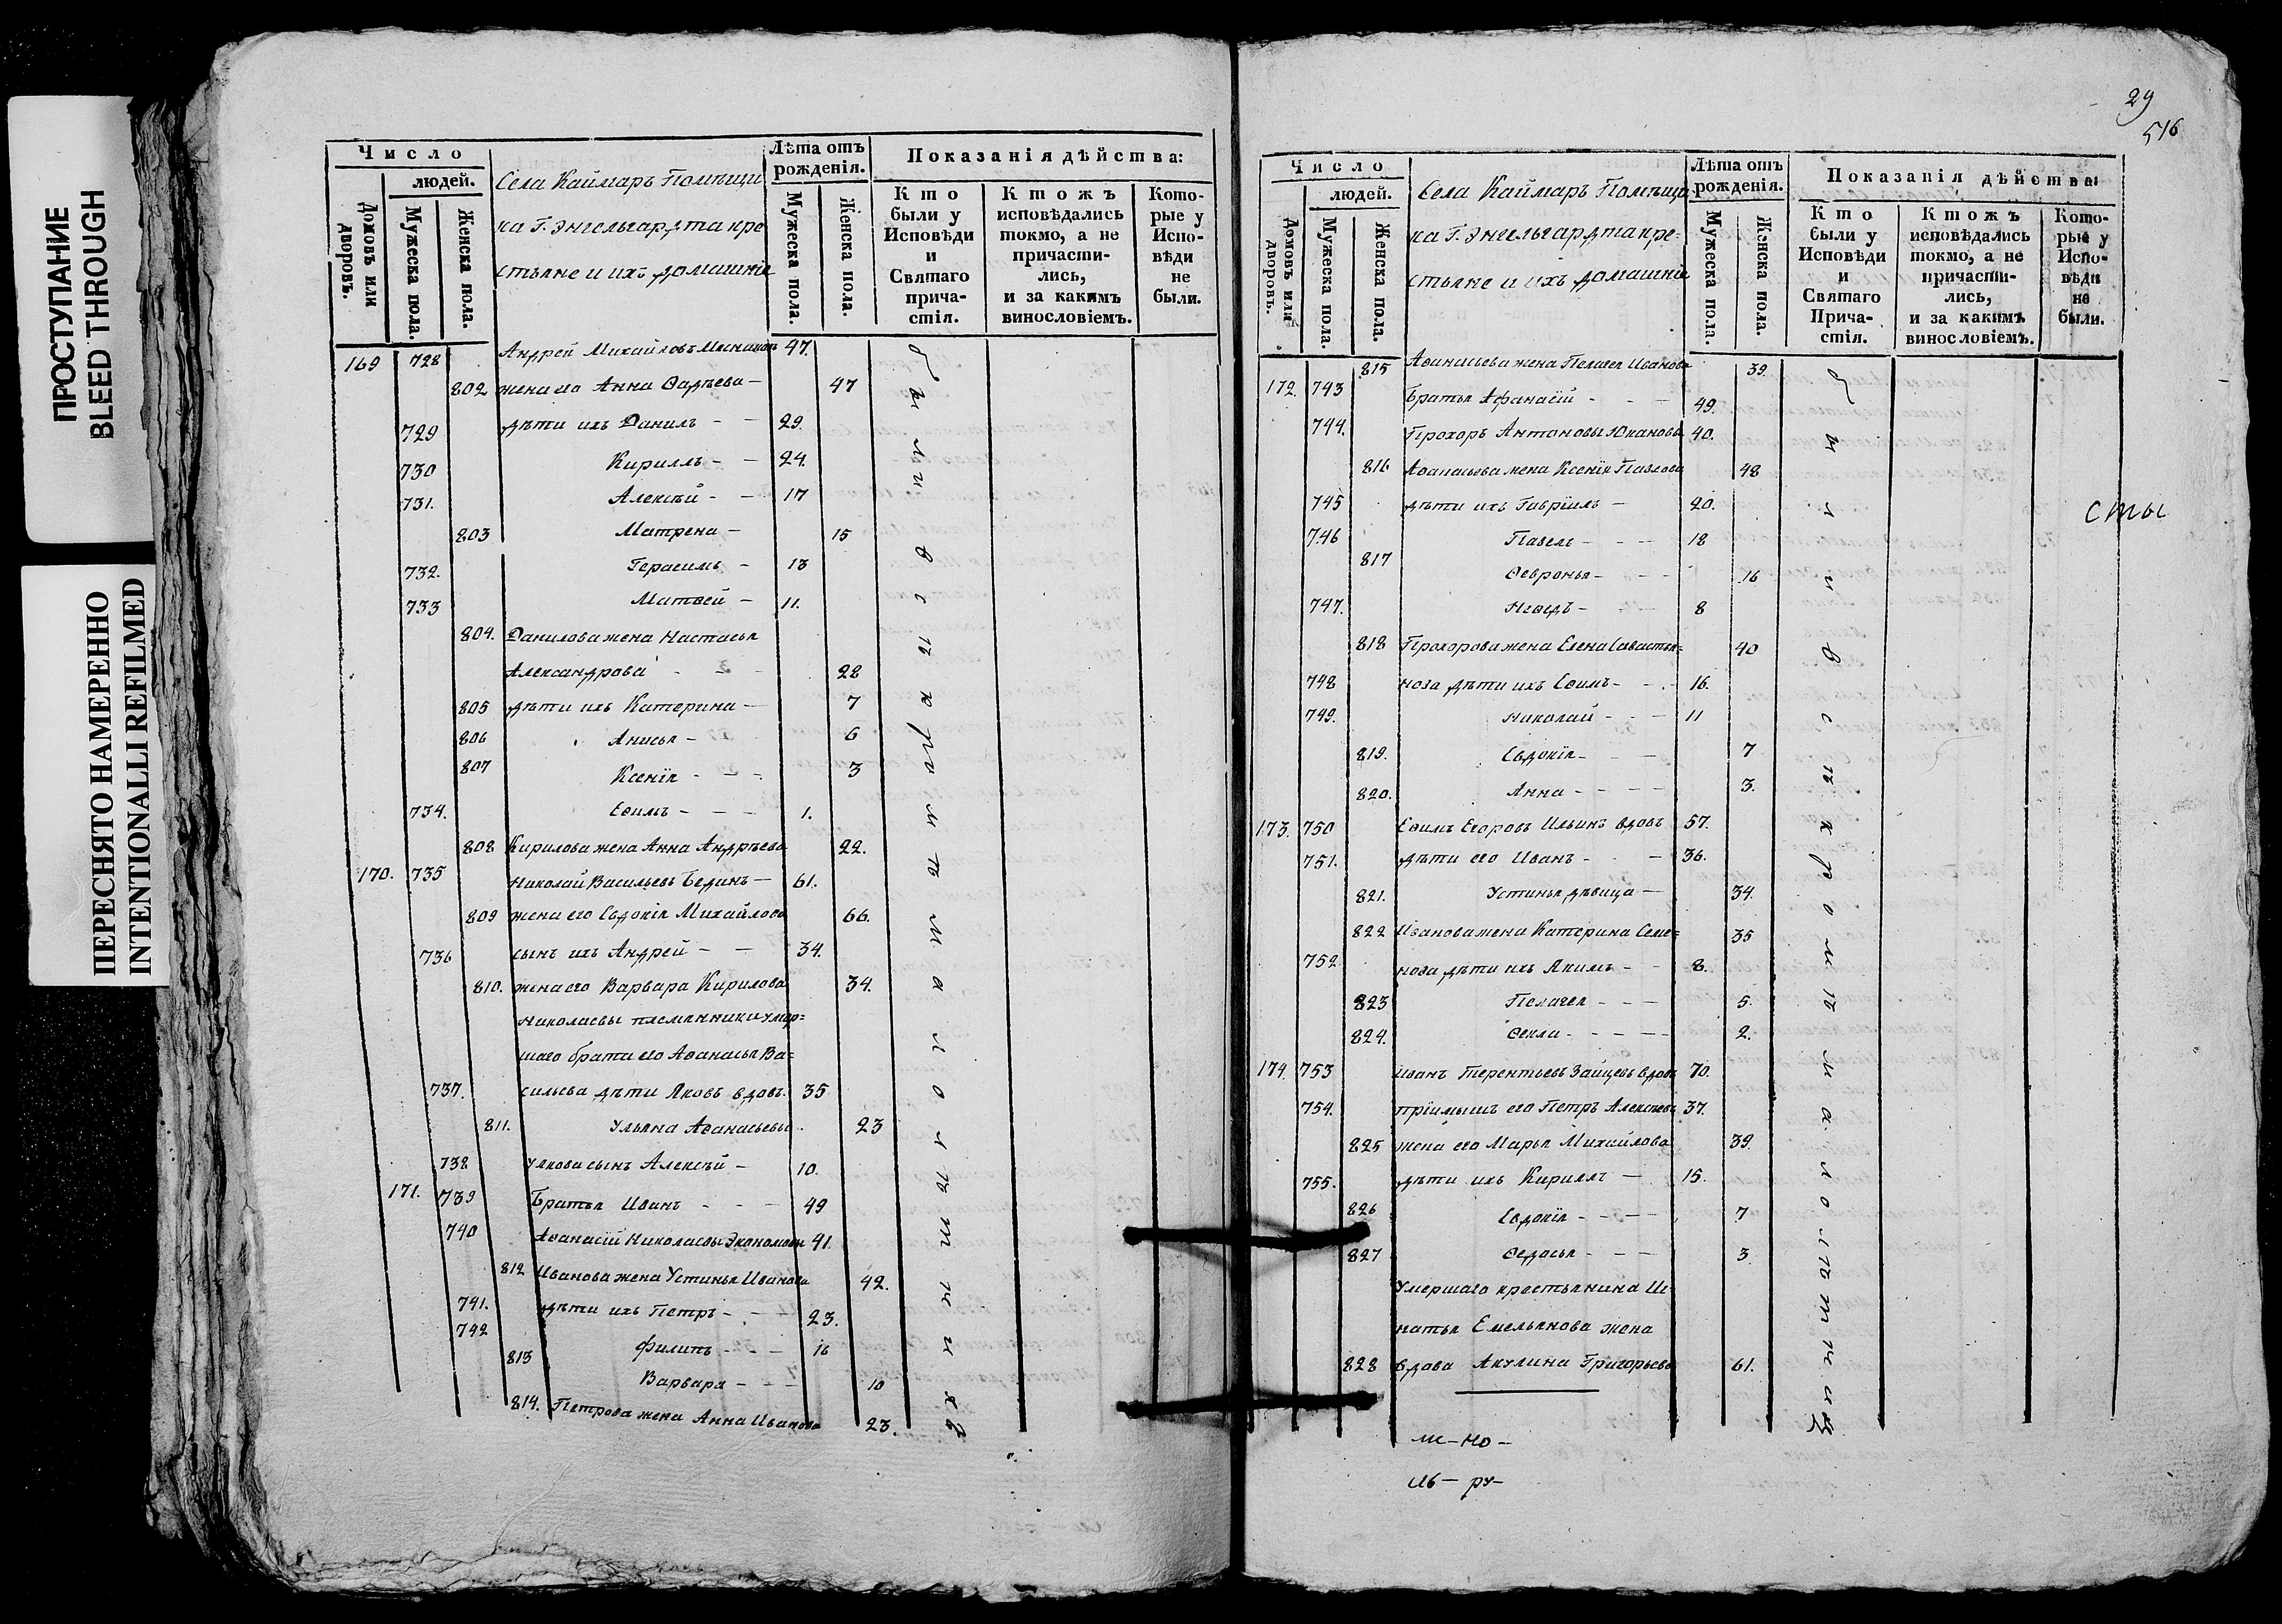 ПРОСТУПАНИЕ
BLEED THROUGH
ПЕРЕСНЯТО НАМЕРЕННО
INTENTIONALLI REFILMED
Число
людей.
Домовъ или дворовъ.
Мужеска пола.
Женска пола.
Села Каймаръ Помѣщи
ка Г. Энгельгардта кре
стьяне и ихъ домашнiе
Лѣта отъ рожденiя.
Мужеска пола.
Женска пола.
Показанiя дѣйства:
Кто были у Исповѣди и Святаго прича-стiя.
Ктожъ исповѣдались токмо, а не причасти-лись, и за какимъ винословiемъ.
Кото-рые у Испо-вѣди не были.
169 728 Андрей Михайловъ 47.
802 жена его Анна Ѳадѣева — 47
729 дѣти ихъ Данилъ — 29.
730 Кириллъ — 24.
731. Алексѣй — 17
803 Матрена — 15
732. Герасимъ — 13
733 Матвей — 11.
804. Данилова жена Настасья
Александрова — 28
805 дѣти ихъ Катерина — 7
806 Анисья — 6
807 Ксенiя — 3
734. Еѳимъ — 1.
808 Кирилова жена Анна Андрѣева 22.
170. 735 Николай Васильевъ Бединъ — 61.
809 жена его Евдокiя Михайлова 66.
736 сынъ ихъ Андрей — 34.
810. жена его Варвара Кирилова 34.
Николаевы племянники умер=
шаго брата его Аѳанасья Ва=
737. сильева дѣти Яковъ вдовъ. 35
811. Ульяна Аѳанасьевы 23
738 Якова сынъ Алексѣй — 10.
171. 739 Братья Иванъ — 49
740 Аѳанасiй Николаевы Экономовы 41.
812 Иванова жена Устинья Иванова 42.
741. дѣти ихъ Петръ — 23.
742 Филипъ — 16
813 Варвара — 10
814. Петрова жена Анна Иванова 23.
были всѣ кромѣ малолѣтнихъ
29
516
Число
людей.
Домовъ или дворовъ.
Мужеска пола.
Женска пола.
Села Каймаръ Помѣщи
ка Г. Энгельгардта кре=
стьяне и ихъ домашнiе
Лѣта отъ рожденiя.
Мужеска пола.
Женска пола.
Показанiя дѣйства:
Кто были у Исповѣди и Святаго Прича-стiя.
Ктожъ исповѣдались токмо, а не причасти-лись, и за какимъ винословiемъ.
Кото-рые у Испо-вѣди не были.
815 Аѳанасьева жена Пелагея Иванова 39.
172. 743 Братья Афанасiй — 49.
744. Прохоръ Антоновы Юкановы 40.
816 Аѳанасьева жена Ксенiя Павлова 48
745 дѣти ихъ Гаврiилъ — 20.
746 Павелъ — 18
817 Ѳевронья — 16
747. Неѳедъ — 8
818 Прохорова жена Елена Савастья= 40
748 нова дѣти ихъ Еѳимъ — 16.
749. Николай — 11
819. Евдокiя — 7
820. Анна — 3.
173. 750 Еѳимъ Егоровъ Ильинъ вдовъ 57.
751. дѣти его Иванъ — 36.
821. Устинья дѣвица — 34.
822 Иванова жена Катерина Семе= 35
752. нова дѣти ихъ Якимъ — 8.
823 Пелагея — 5.
824. Ѳекла — 2.
174. 753 Иванъ Терентьевъ Зайцевъ вдовъ 70.
754. прiимышъ его Петръ Алексѣевъ 37.
825 жена его Марья Михайлова 39.
755. дѣти ихъ Кириллъ — 15.
826 Евдокiя — 7
827 Ѳедосья — 3
Умершаго крестьянина Иг=
натья Емельянова жена
828 вдова Акулина Григорьева 61.
были всѣ кромѣ малолѣтнихъ
сты